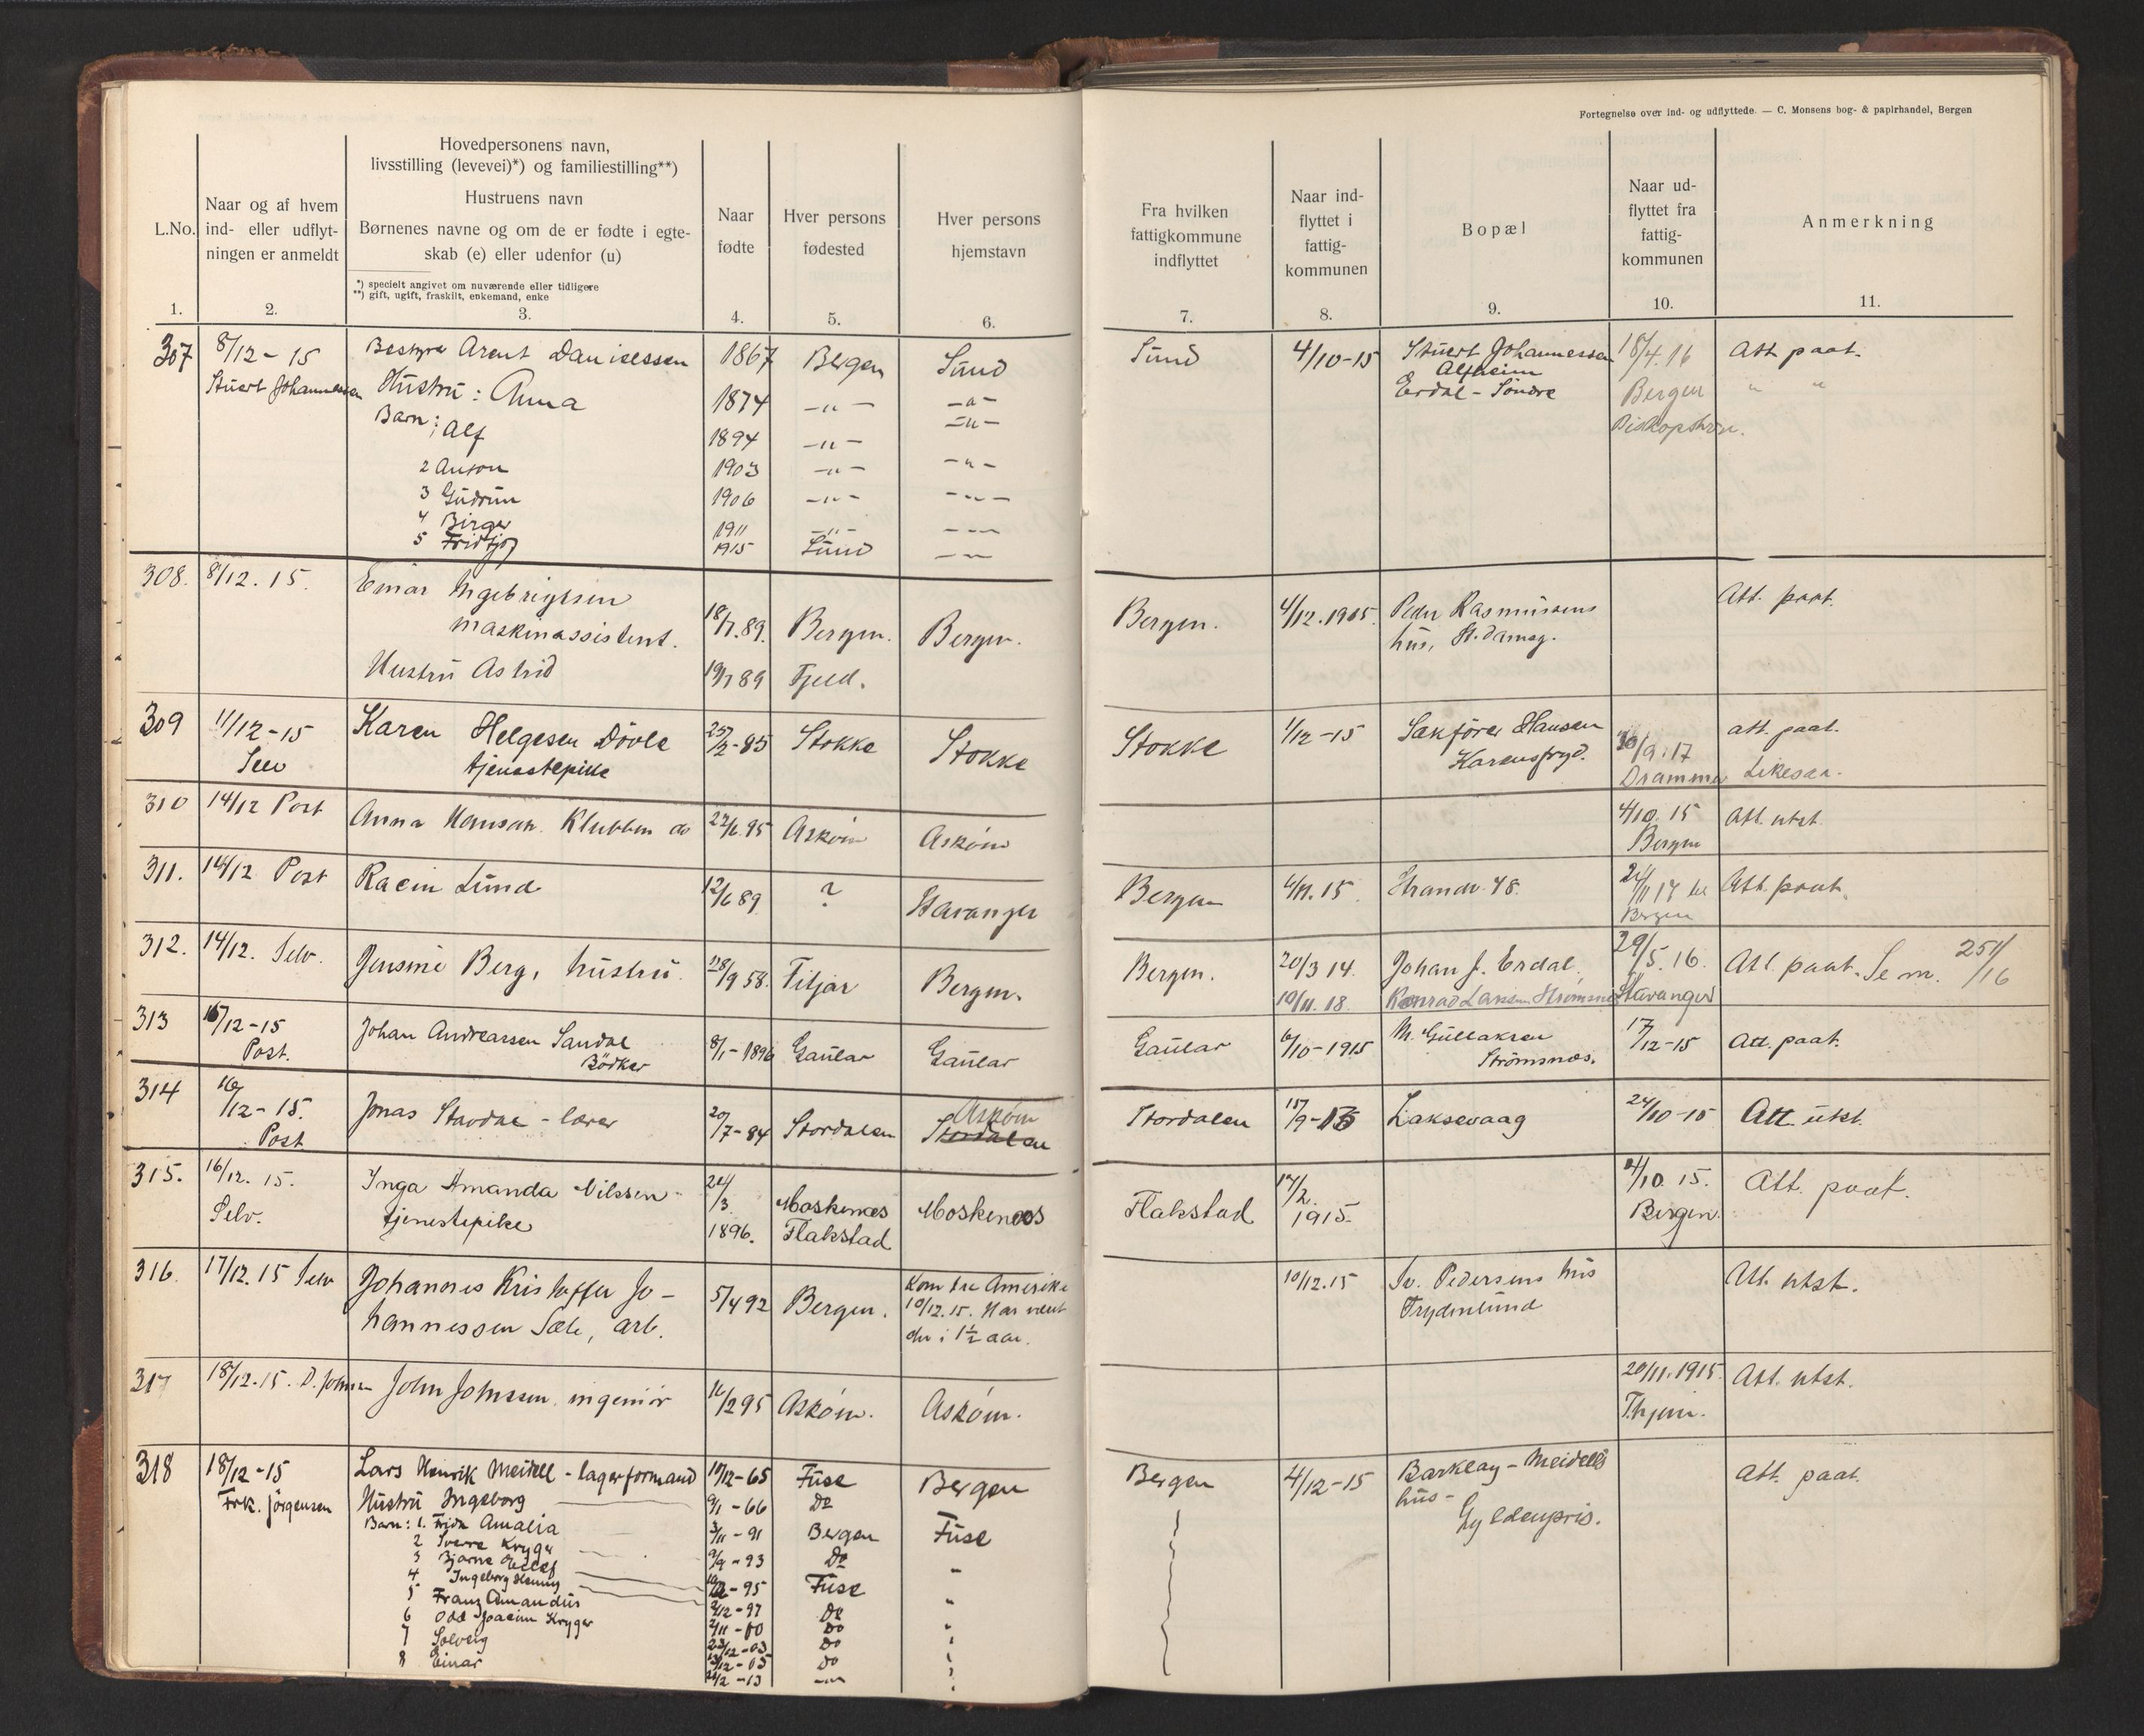 Fortegnelse over ind- og udflyttede. — C. Monsens bog- & papirhandel, Bergen
L.No.
1.
Naar og af hvem
ind- eller udflyt-
ningen er anmeldt
2.
Hovedpersonens navn,
livsstilling (levevei)*) og familiestilling**)
Hustruens navn
Børnenes navne og om de er fødte i egte-
skab (e) eller udenfor (u)
*) specielt angivet om nuværende eller tidligere
**) gift, ugift, fraskilt, enkemand, enke
3.
Naar
fødte
4.
Hver persons
fødested
5.
Hver persons
hjemstavn
6.
Fra hvilken
fattigkommune
indflyttet
7.
Naar ind-
flyttet i
fattig-
kommunen
8.
Bopæl
9.
Naar ud-
flyttet fra
fattig-
kommunen
10.
Anmerkning
11.
307 8/12-15 Bestyrer Arent Danielssen 1867 Bergen Sund Sund 4/10-15 Stuert Johannessen 18/4.16 Att paat.
Stuert Johannessen Hustru: Anna 1874 -"- -"- Alfheim Bergen " "
Erdal-Söndre
Barn: 1 Alf 1894 -"- -"-
2 Anton 1903 -"- -"-
3 Gudrun 1906 -"- -"-
4 Birger 1911 -"- -"-
5 Fridtjof 1915 Sund -"-
308. 8/12. 15. Einar Ingebrigtsen
maskinassistent. 18/7.89. Bergen. Bergen. Bergen. 4/12.1915. Peder Rasmussens Att. paat.
hus, St. damsg.
Hustru Astrid 19/7 89 Fjeld.
309 11/12-15 Karen Helgesen Dövle 25/2-85 Stokke Stokke Stokke 1/12-15 Sakförer Hansen 30/9.17 att. paat.
Selv tjenestepike Karensfryd. Drammen Likesaa.
310 14/12 Post Anna Hansen Klubben do 22/6 95 Asköin Asköin 4/10. 15 Att. utst.
Bergen
311. 14/12 Post Lund 12/6 89 ? Stavanger Bergen 6/11. 15. Strandv. 48. Att. paat.
Bergen
312. 14/12. Selv. Jensine Berg, hustru. 28/9 58. Fitjar Bergen. Bergen. 20/3 14. Johan J. Erdal 29/5. 16. Att. paat. Se m. 251/16
19/11. 18. Konrad Larsen Stavanger
313 15/12-15 Johan Andreassen Sandal 8/1-1896 Gaular Gaular Gaular 6/10-1915 M. Gullaksen 17/12-15 Att. paat.
Post. Bödker Strömsnæs.
314 16/12-15. Jonas Stavdal - lærer 20/7-84 Stordalen Asköin Stordalen 15/9-15 Laksevaag 24/10-15 Att. utst.
Post. Stordalen
315. 16/12. 15. Inga Amanda Nilssen 24/3. Moskenes Moskenæs Flakstad 17/2. 4/10. 15. Att. paat.
Selv. tjenestepike 1896. Flakstad 1915. Bergen.
316. 17/12.15 Selv Johannes Kristoffer Jo- 5/4 92 Bergen. Kom fra Amerika 10/12.15 Sv. Pedersens hus Att. utst.
hannessen Sæle, arb. 10/12.15. Har været Frydenlund
der i 1½ aar.
317 18/12.15. D. Johnsen John Johnssen, ingeniör 16/2 95 Asköin. Asköin. 20/11.1915. Att. utst.
318 18/12-15 Lars Henrik Meidell - lagerformand 19/12-65 Fuse Bergen Bergen 4/12-15 Barklay-Meidells Att. paat.
Frk. Jörgensen Hustru Ingeborg 9/1-66 Do hus-
Barn: 1. Frida Amalia 3/11-91 Bergen Fuse Gyldenpris.
2 Sverre Kryger 9/9-93 Do
3 Bjarne
4 Ingeborg Henny -95 Fuse
5 Franz Amandus 2/12-97 Do
6 Odd Joacim Kryger 2/11-00 Do
7 Solveig 23/12-03 Do
8 Einar 12-05 Do
2/2-13 -"-